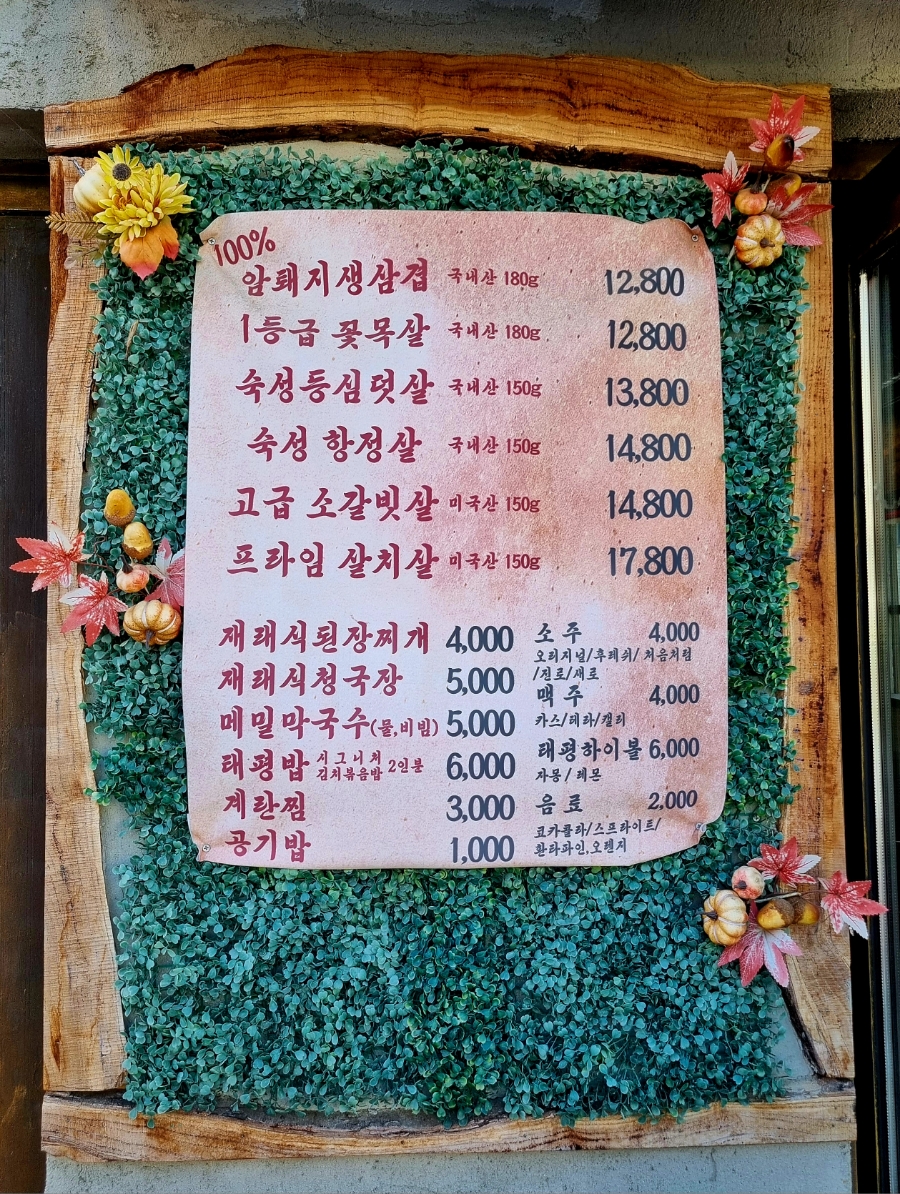 100%
암퇘지생삼겹 국내산 180g 12,800
1등급 꽃목살 국내산 180g 12,800
숙성등심덧살 국내산 150g 13,800
숙성 항정살 국내산 150g 14,800
고급 소갈빗살 미국산 150g 14,800
프라임 살치살 미국산 150g 17,800
재래식된장찌개 4,000
재래식청국장 5,000
메밀막국수(물,비빔) 5,000
태평밥 시그니처 김치볶음밥 2인분 6,000
계란찜 3,000
공기밥 1,000
소주 4,000
오리지널/후레쉬/처음처럼
/진로/새로
맥주 4,000
카스/테라/켈리
태평하이볼 6,000
자몽/레몬
음료 2,000
코카콜라/스프라이트/
환타파인,오렌지